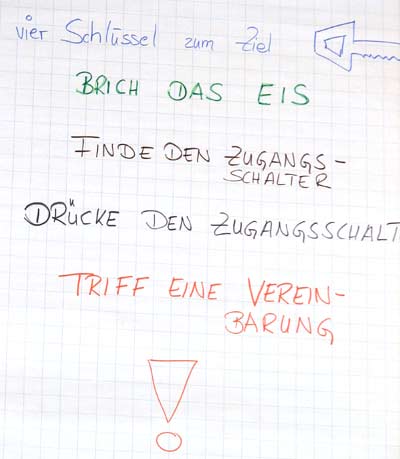 vier Schlüssel zum Ziel
BRICH DAS EIS
FINDE DEN ZUGANGS-
SCHALTER
DRÜCKE DEN ZUGANGSSCHALT
TRIFF EINE VEREIN-
BARUNG
!